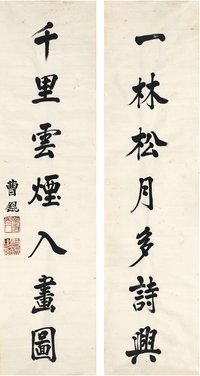 一林松月多詩興
千里雲煙入畫圖
曹錕